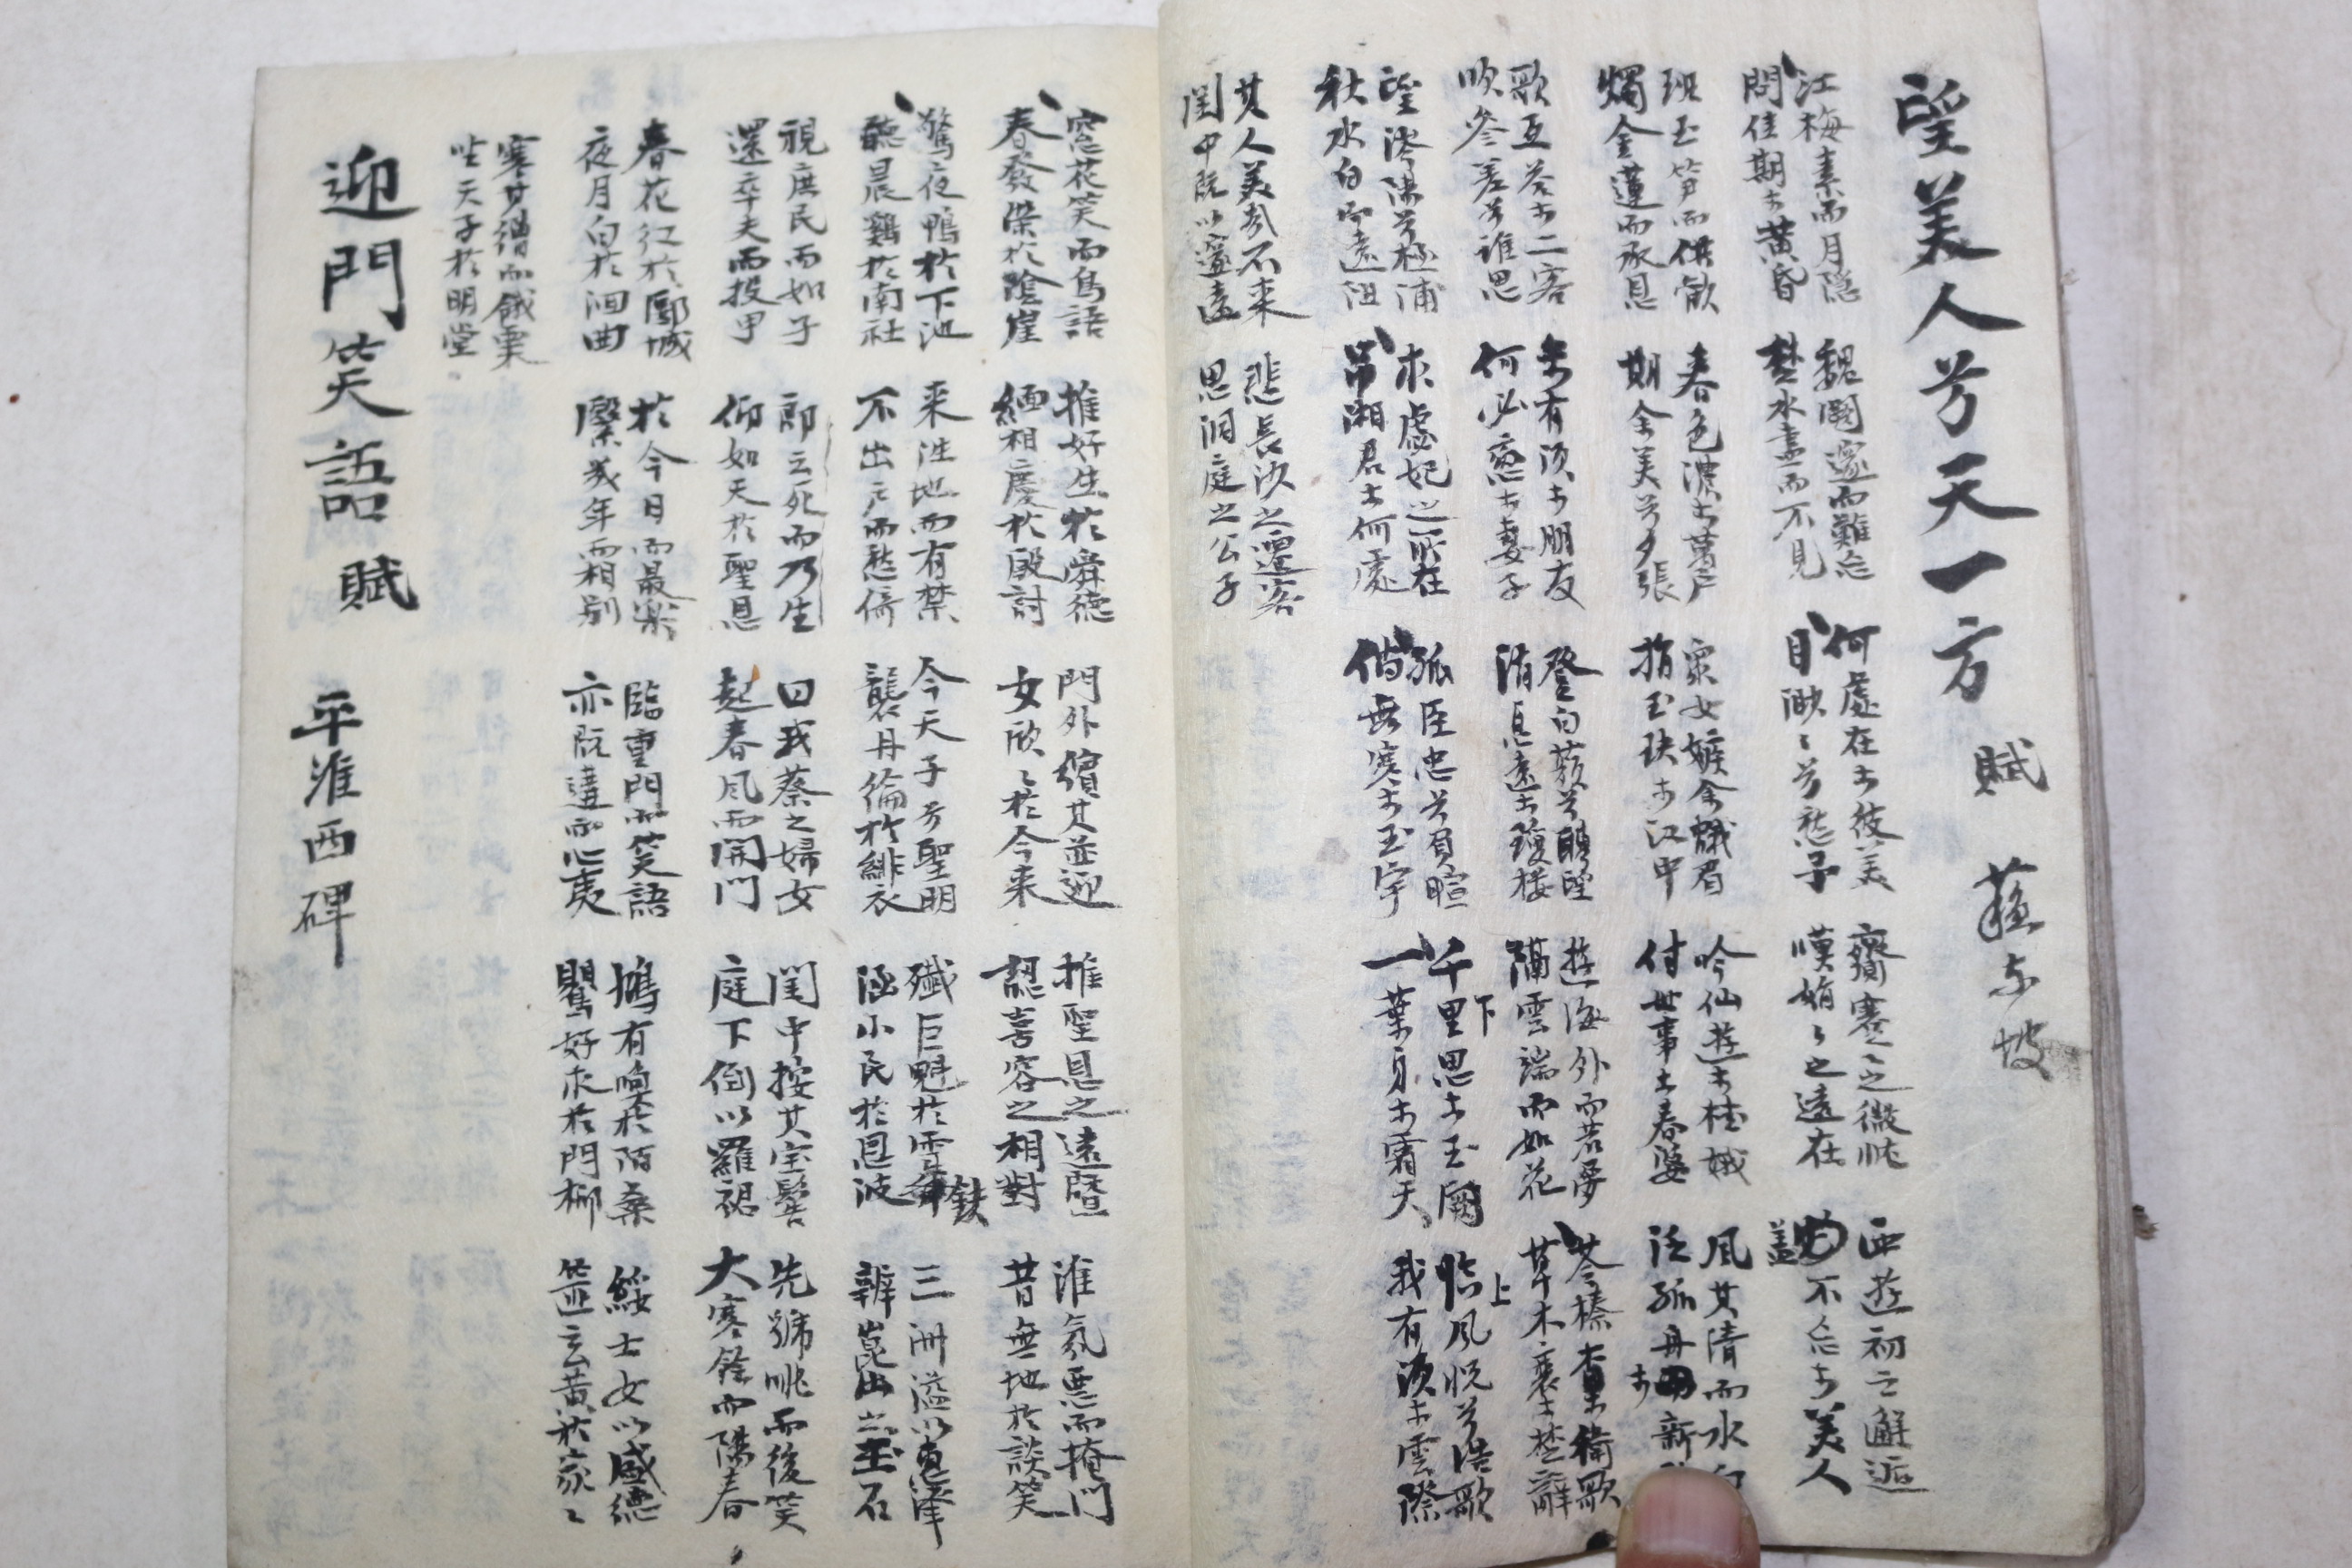 望美人兮天一方 賦 蘇東坡
江梅素而月隱
問佳期於黃昏
魏闕邈而難忘
楚水盡而不見
何處在於彼美
目渺〻兮愁予
齎蹇〻之微忱
嘆娟〻之遠在
西遊初之邂逅
盖不忘於美人
班玉笋而供歡
燭金蓮而承恩
春色濃於萬戶
期余美兮夕張
衆女嫉余蛾眉
指玉玦於江中
吟仙遊於桂娥
付世事於春婆
風其清而水白
泛孤舟於新
歌互答於二客
吹參差兮誰思
未有須於朋友
何必戀於妻子
登白蘋兮騁望
消息遠於瓊樓
遊海外而若夢
隔雲端而如花
苓榛查於衛歌
草木衰於楚辭
望涔陽兮極浦
秋水白而遠阻
求虙妃之所在
吊湘君於何處
孤臣忠兮負暄
倘無寒於玉宇
千里思於玉闕 下
一葉身於霜天
臨風怳兮浩歌 上
我有須於雲際
其人美兮不来
閨中旣以邃遠
悲長沙之遷客
思洞庭之公子
窓花笑而鳥語
春發深於陰崖
推好生於舜德
緬相慶於殷討
門外繽其並迎
女欣〻於今来
推聖恩之遠曁
認喜容之相對
淮氛惡而掩門
昔無地於談笑
驚夜鴨於下池
聽晨鷄於南社
来徃地而有禁
不出戶而愁倚
今天子兮聖明
襲丹綸於緋衣
殲巨魁於雪 鉄
涵小民於恩波
三洲溢以惠澤
辨崑出之玉石
視庶民而如子
還卒夫而投甲
郎云死而乃生
仰如天於聖恩
曰我蔡之婦女
起春風而開門
閨中按其宝髻
庭下倒以羅裙
先號咷而後笑
大寒餘而陽春
春花红於郾城
夜月白於洄曲
於今日而最樂
繄幾年而相别
臨重門而笑語
亦旣遘而心夷
鳩有喚於陌桑
鷖好求於門柳
綏士女以感德
篚玄黃於家〻
寒其繒而餓粟
坐天子於明堂
迎門笑語賦 平淮西碑